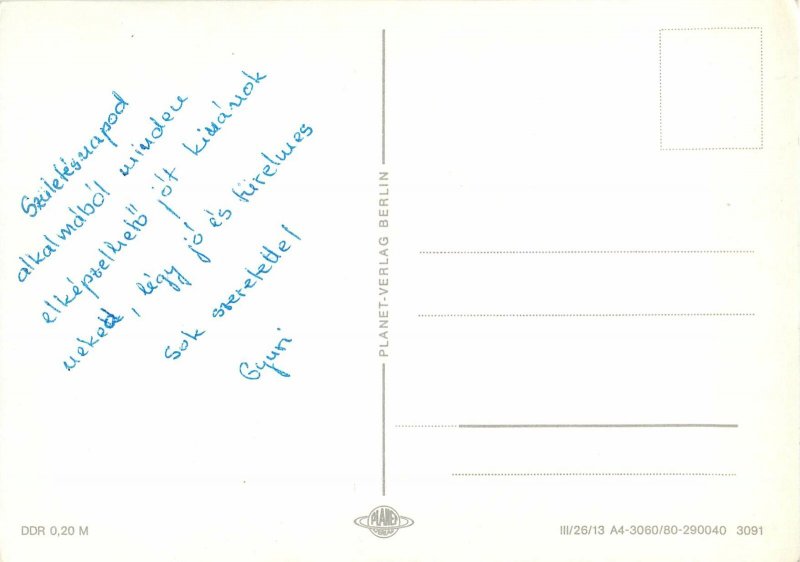 Születésnapod
alkalmából minden
elképzelhető jót kívánok
neked, légy jó és türelmes
Sok szeretettel
Gyuri
PLANET-VERLAG BERLIN
DDR 0,20 M
PLANET
VERLAG
III/26/13 A4-3060/80-290040 3091